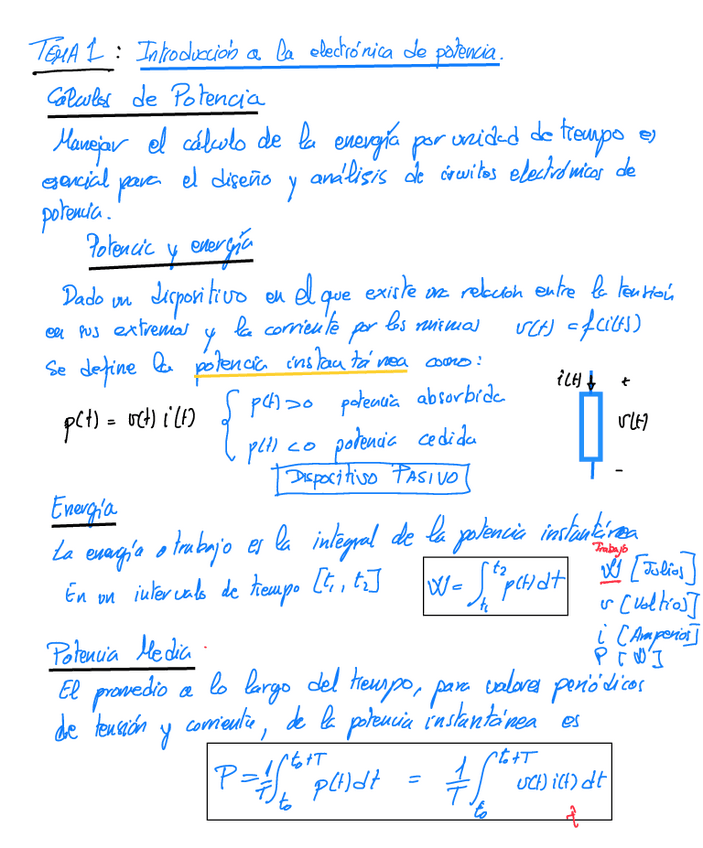 TEMA 1: Introducción a la electrónica de potencia.
Cálculos de Potencia
Manejar el cálculo de la energía por unidad de tiempo es
esencial para el diseño y análisis de circuitos electrónicos de
potencia.
Potencia y energía
Dado un dispositivo en el que existe una relación entre la tensión
en sus extremos y la corriente por los mismos v(t) = f(i(t))
se define la potencia instantánea como:
p(t) = v(t) i(t) { p(t)>0 potencia absorbida
p(t)<0 potencia cedida
Dispositivo PASIVO
i(t) +
v(t)
-
Energía
La energía o trabajo es la integral de la potencia instantánea
En un intervalo de tiempo [t₁, t₂] W = ∫_{t₁}^{t₂} p(t) dt
Trabajo
W [Julios]
v [Voltios]
i [Amperios]
P [W]
Potencia Media
El promedio a lo largo del tiempo, para valores periódicos
de tensión y corriente, de la potencia instantánea es
P = 1/T ∫_{t₀}^{t₀+T} p(t) dt = 1/T ∫_{t₀}^{t₀+T} v(t) i(t) dt